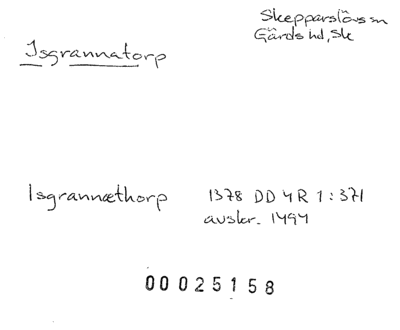 Skepparslövs sn
Gärds hd, Sk
Isgrannatorp
Isgrannæthorp 1378 DD 4R 1:371
avskr. 1494
00025158